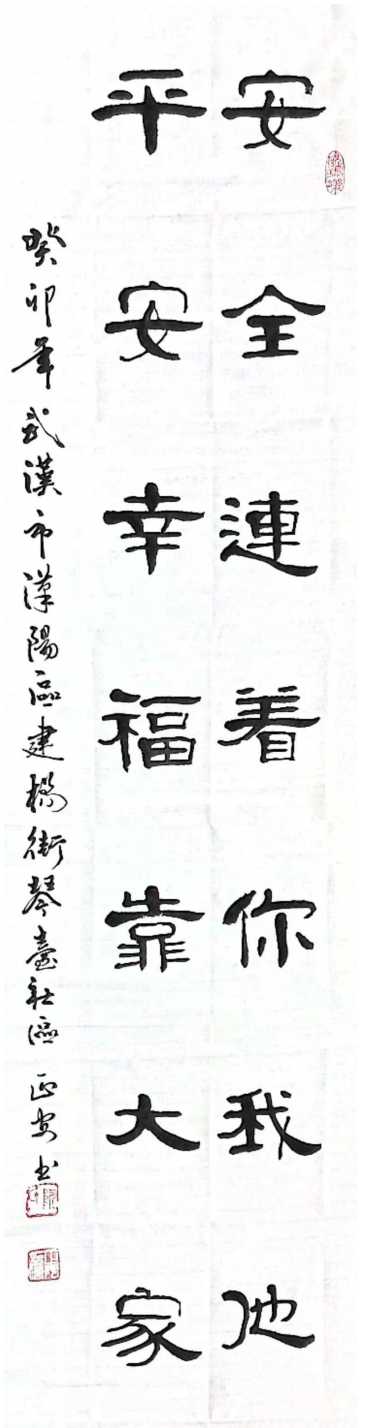 安全連着你我他
平安幸福靠大家
癸卯年武漢市漢陽區建橋街琴臺社區 正安书